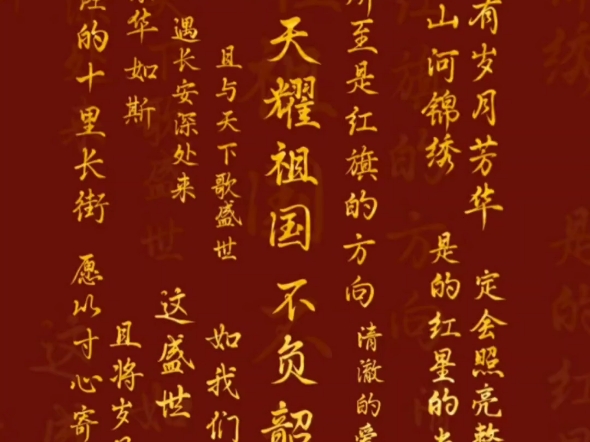 有岁月芳华 定会照亮
山河锦绣 是的红星的
至是红旗的方向 清澈的爱
天耀祖国不负韶
且与天下歌盛世 如我们
遇长安深处来 这盛世
华如斯 且将岁
的十里长街 愿以寸心寄